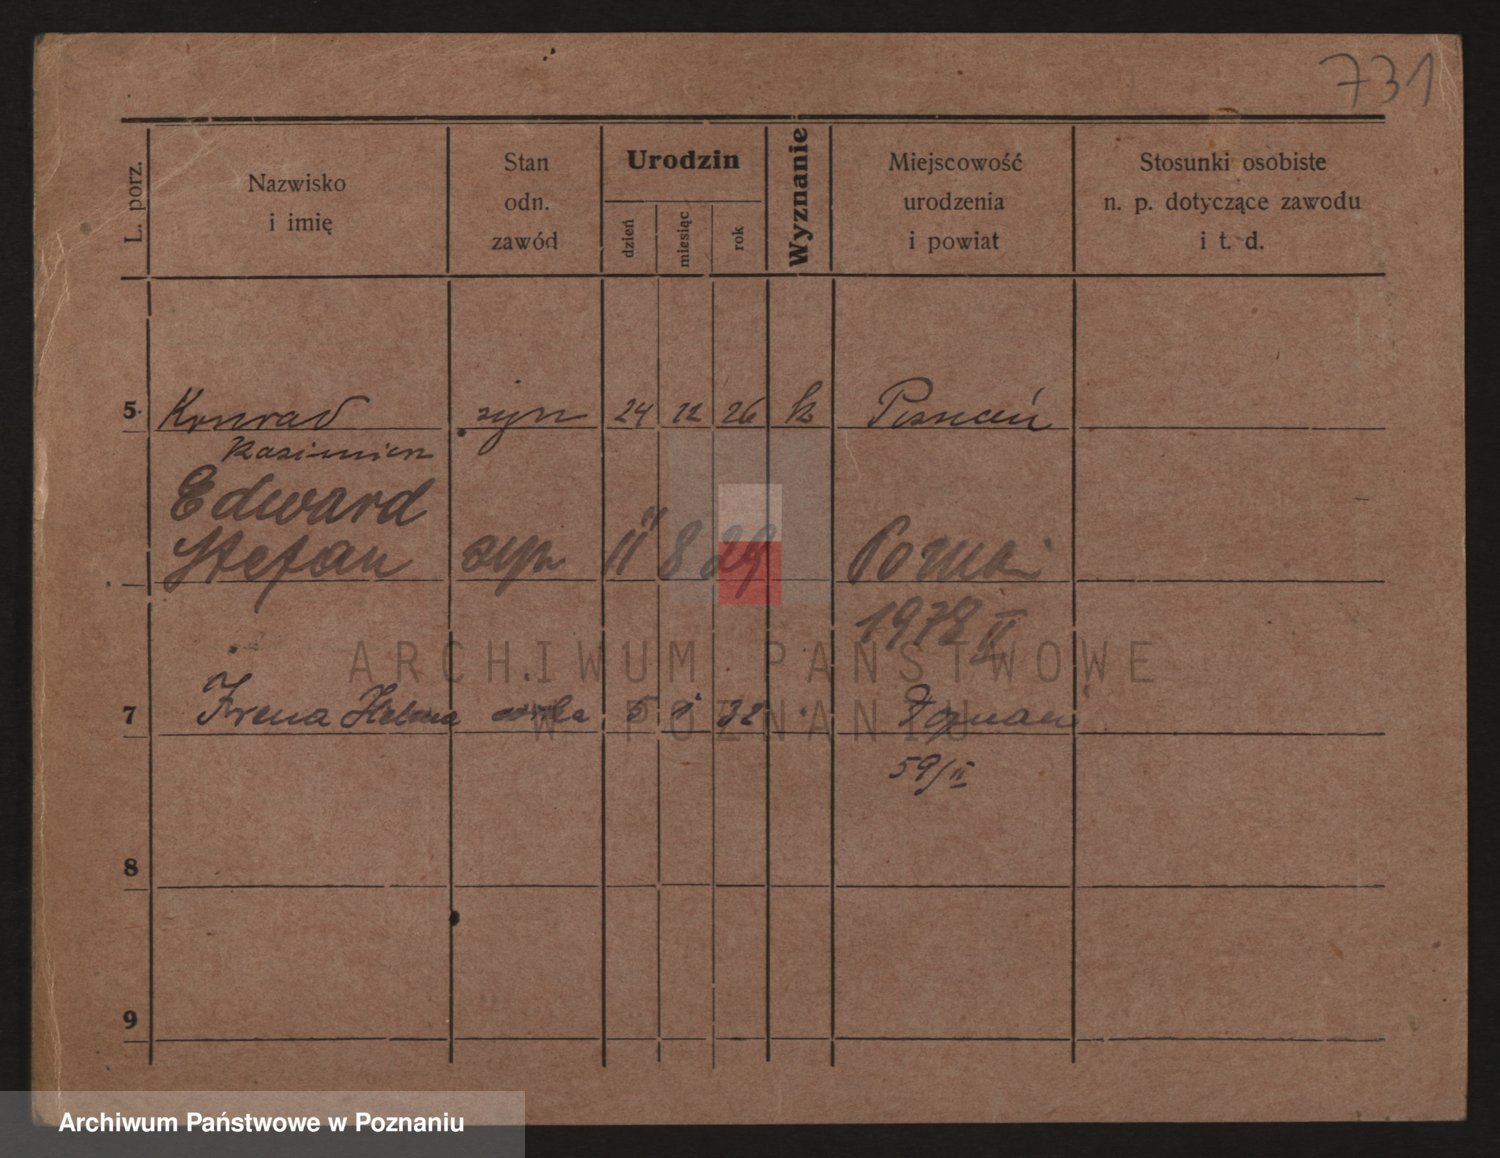 731
L. porz.
Nazwisko
i imię
Stan
odn.
zawód
Urodzin
dzień
miesiąc
rok
Wyznanie
Miejscowość
urodzenia
i powiat
Stosunki osobiste
n. p. dotyczące zawodu
i t. d.
5 Konrad syn 24 12 26 k Poznań
Kazimierz
Edward
Stefan syn 11 8 29
1978 II
ARCHIWUM PAŃSTWOWE
7 Irena Helena 5 1 32 Poznań
W POZNANIU
59/II
8
9
Archiwum Państwowe w Poznaniu